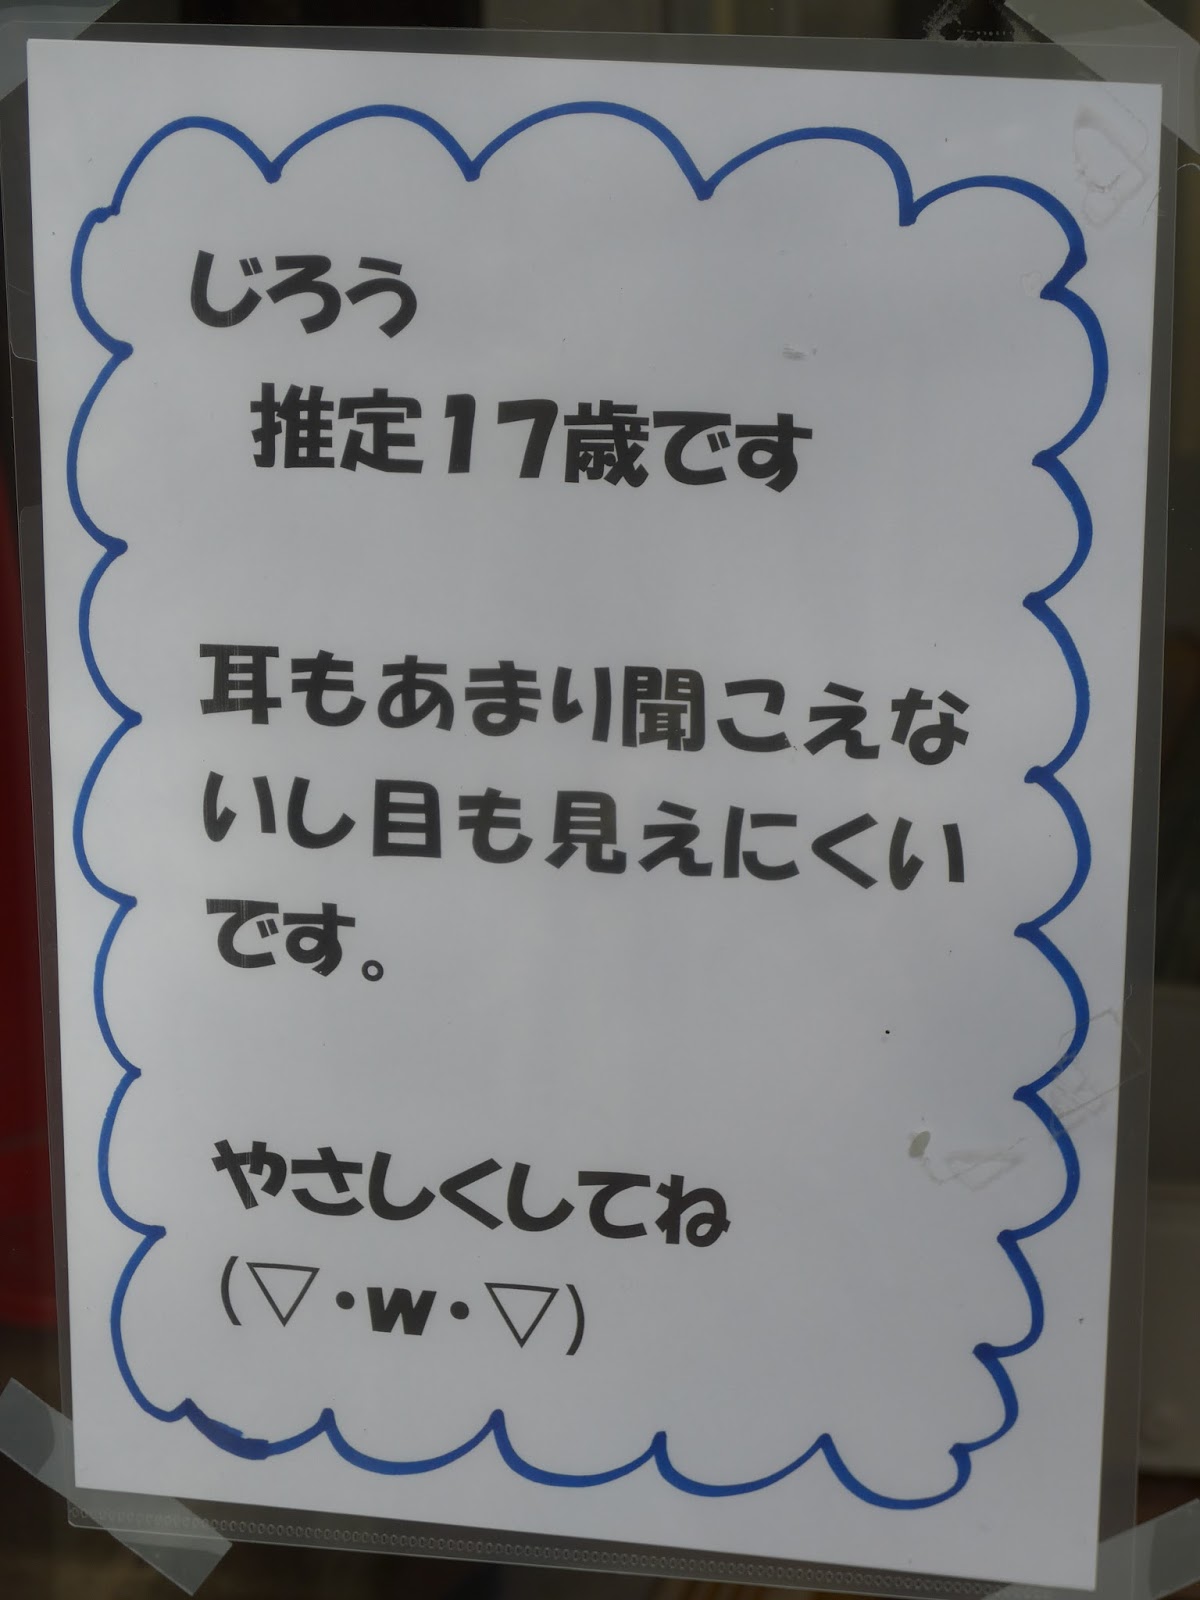 じろう
推定17歳です
耳もあまり聞こえな
いし目も見えにくい
です。
やさしくしてね
(▽・w・▽)